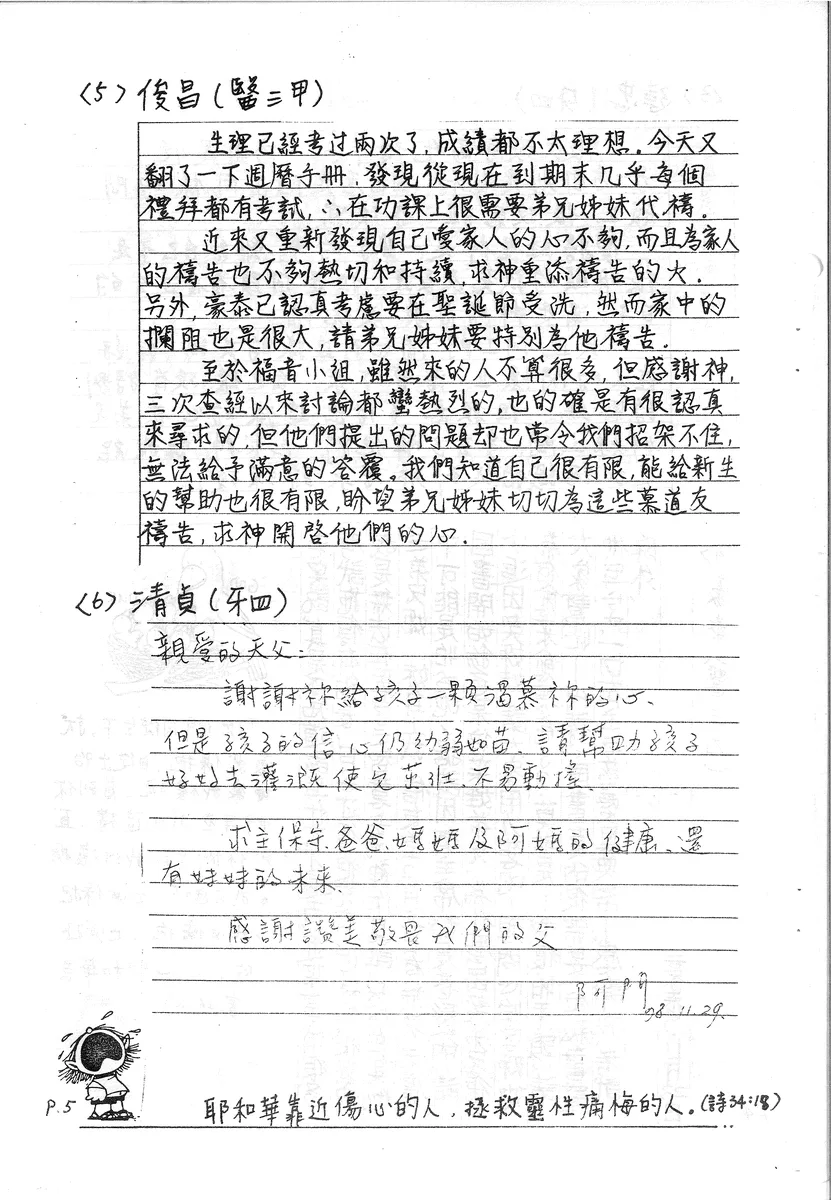 〈5〉俊昌(醫三甲)
生理已經考过兩次了,成績都不太理想。今天又
翻了一下週曆手冊,發現從現在到期末几乎每個
禮拜都有考試,∴在功課上很需要弟兄姊妹代禱。
近來又重新發現自己愛家人的心不夠,而且為家人
的禱告也不夠熱切和持續,求神重添禱告的火.
另外,豪泰已認真考慮要在聖誕節受洗,然而家中的
攔阻也是很大,請弟兄姊妹要特別為他禱告.
至於福音小組,雖然來的人不算很多,但感謝神,
三次查經以來討論都蠻熱烈的,也的確是有很認真
來尋求的,但他們提出的問題却也常令我們招架不住,
無法給予滿意的答覆。我們知道自己很有限,能給新生
的幫助也很有限,盼望弟兄姊妹切切為這些慕道友
禱告,求神開啓他們的心.
〈6〉清貞(牙四)
親愛的天父:
謝謝祢給孩子一顆渴慕祢的心、
但是孩子的信心仍幼弱如苗、請幫助孩子
好好去灌溉使它茁壯、不易動搖.
求主保守、爸爸、媽媽及阿媽的健康、還
有妹妹的未來.
感謝讚美敬畏我們的父
阿門
78.11.29.
P.5
耶和華靠近傷心的人,拯救靈性痛悔的人。(詩34:18)